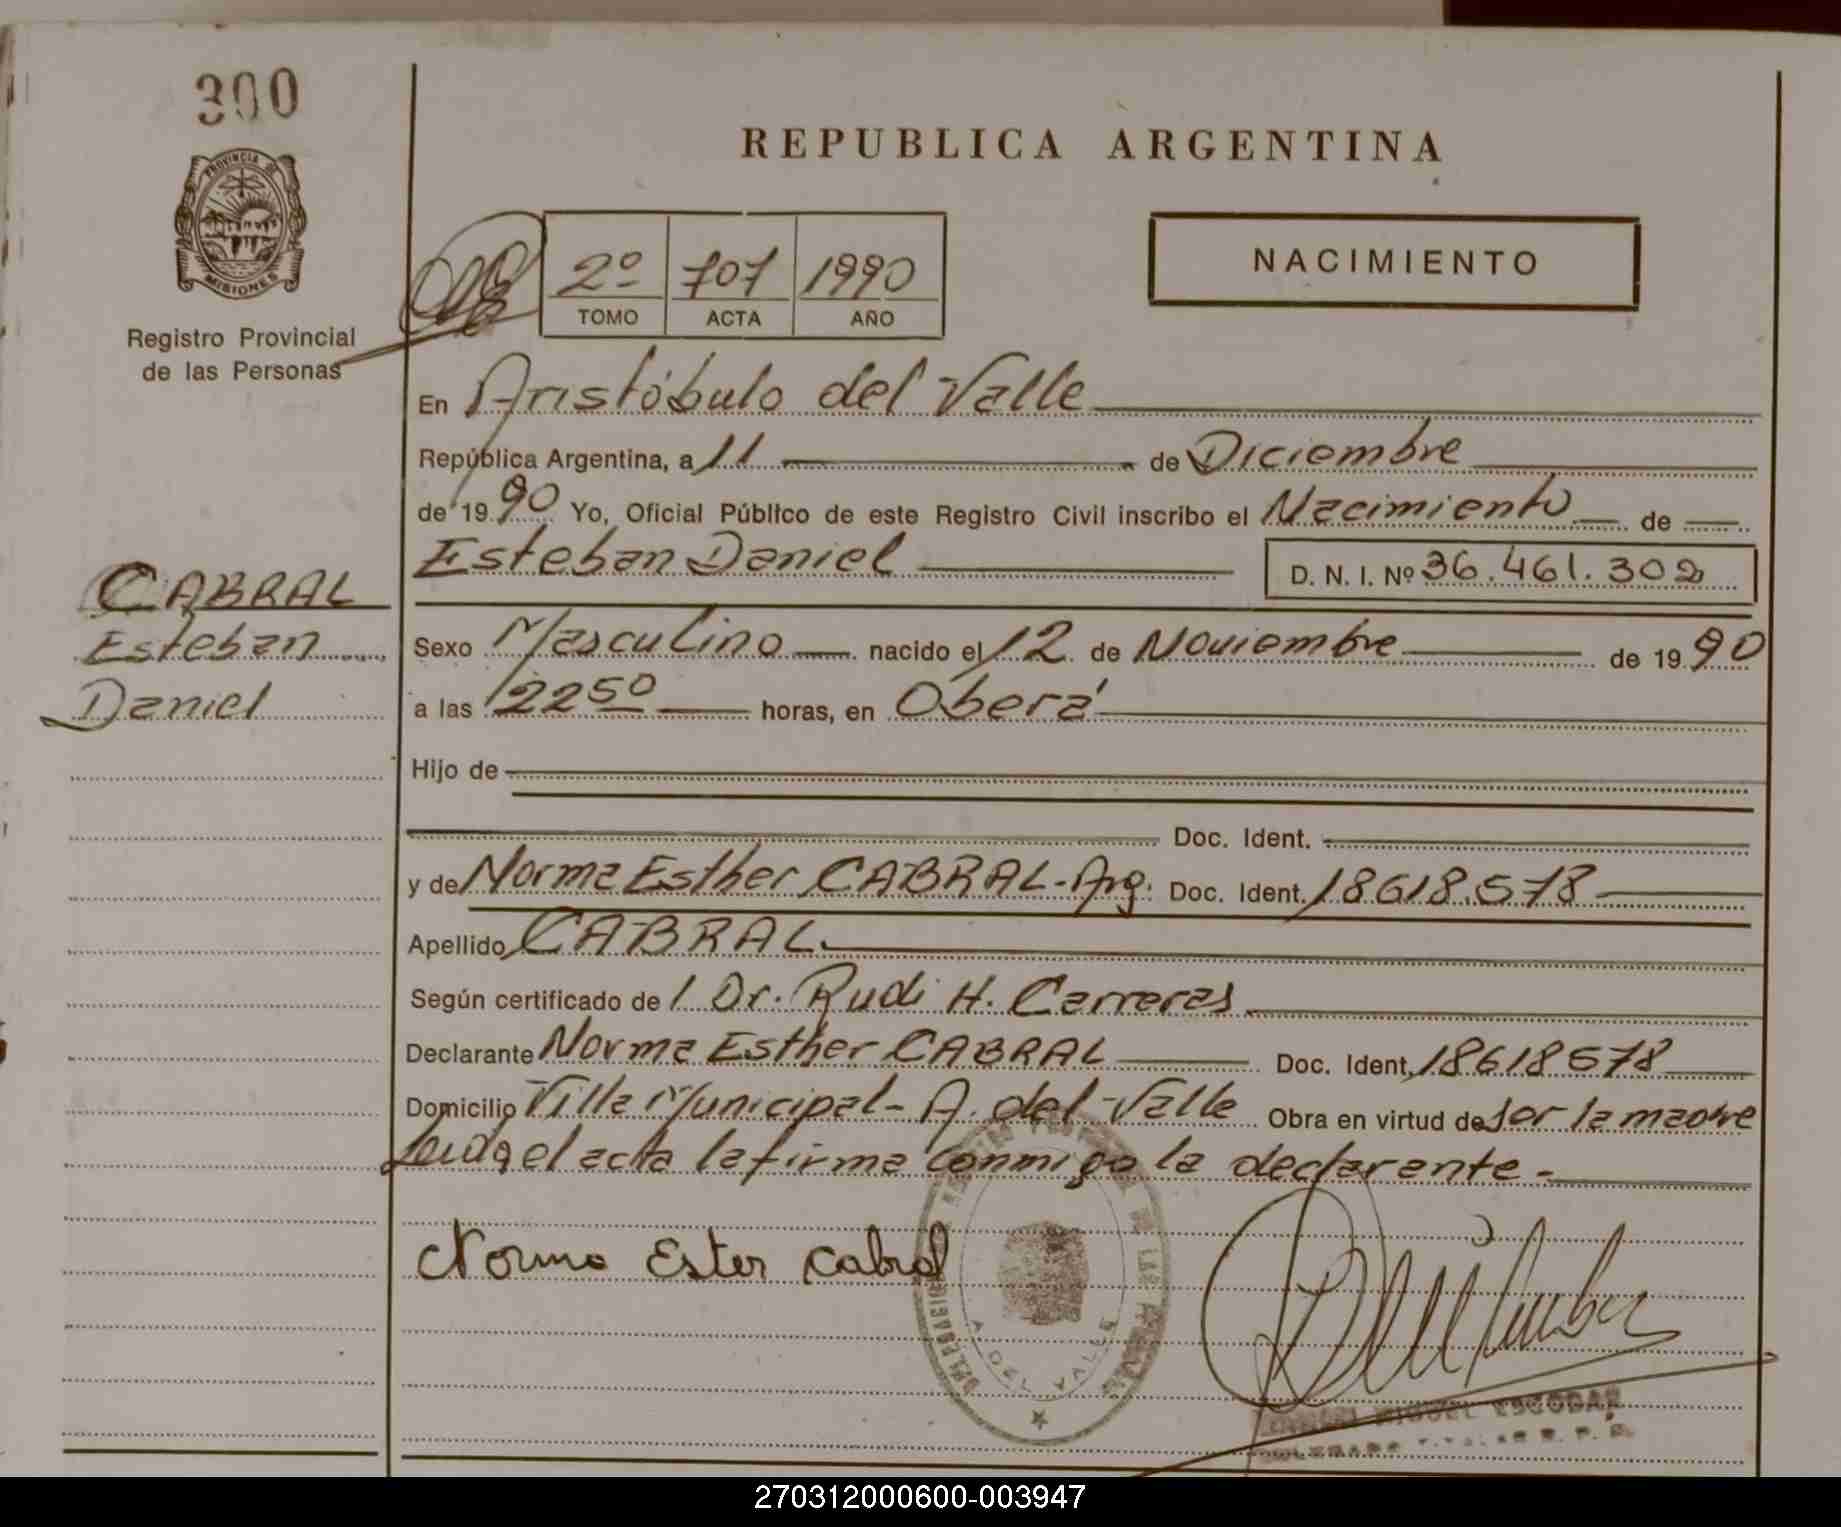 300
PROVINCIA DE
MISIONES
Registro Provincial
de las Personas
REPUBLICA ARGENTINA
2º 707 1990
TOMO ACTA AÑO
NACIMIENTO
En Aristóbulo del Valle
República Argentina, a 11 de Diciembre
de 1990 Yo, Oficial Público de este Registro Civil inscribo el Nacimiento de
Esteban Daniel D. N. I. Nº 36.461.302
CABRAL
Esteban
Daniel
Sexo Masculino nacido el 12 de Noviembre de 1990
a las 2250 horas, en Oberá
Hijo de
Doc. Ident.
y de Norma Esther CABRAL - Arg. Doc. Ident. 18618.578
Apellido CABRAL
Según certificado de l Dr. Rudi H. Carreras
Declarante Norma Esther CABRAL Doc. Ident. 18618578
Domicilio Villa Municipal - A. del Valle Obra en virtud de ser la madre
Leida el acta la firma conmigo la declarante -
Norma Ester Cabral
DE LAS
A. DEL VALLE
MIGUEL ESCOBAR
270312000600-003947